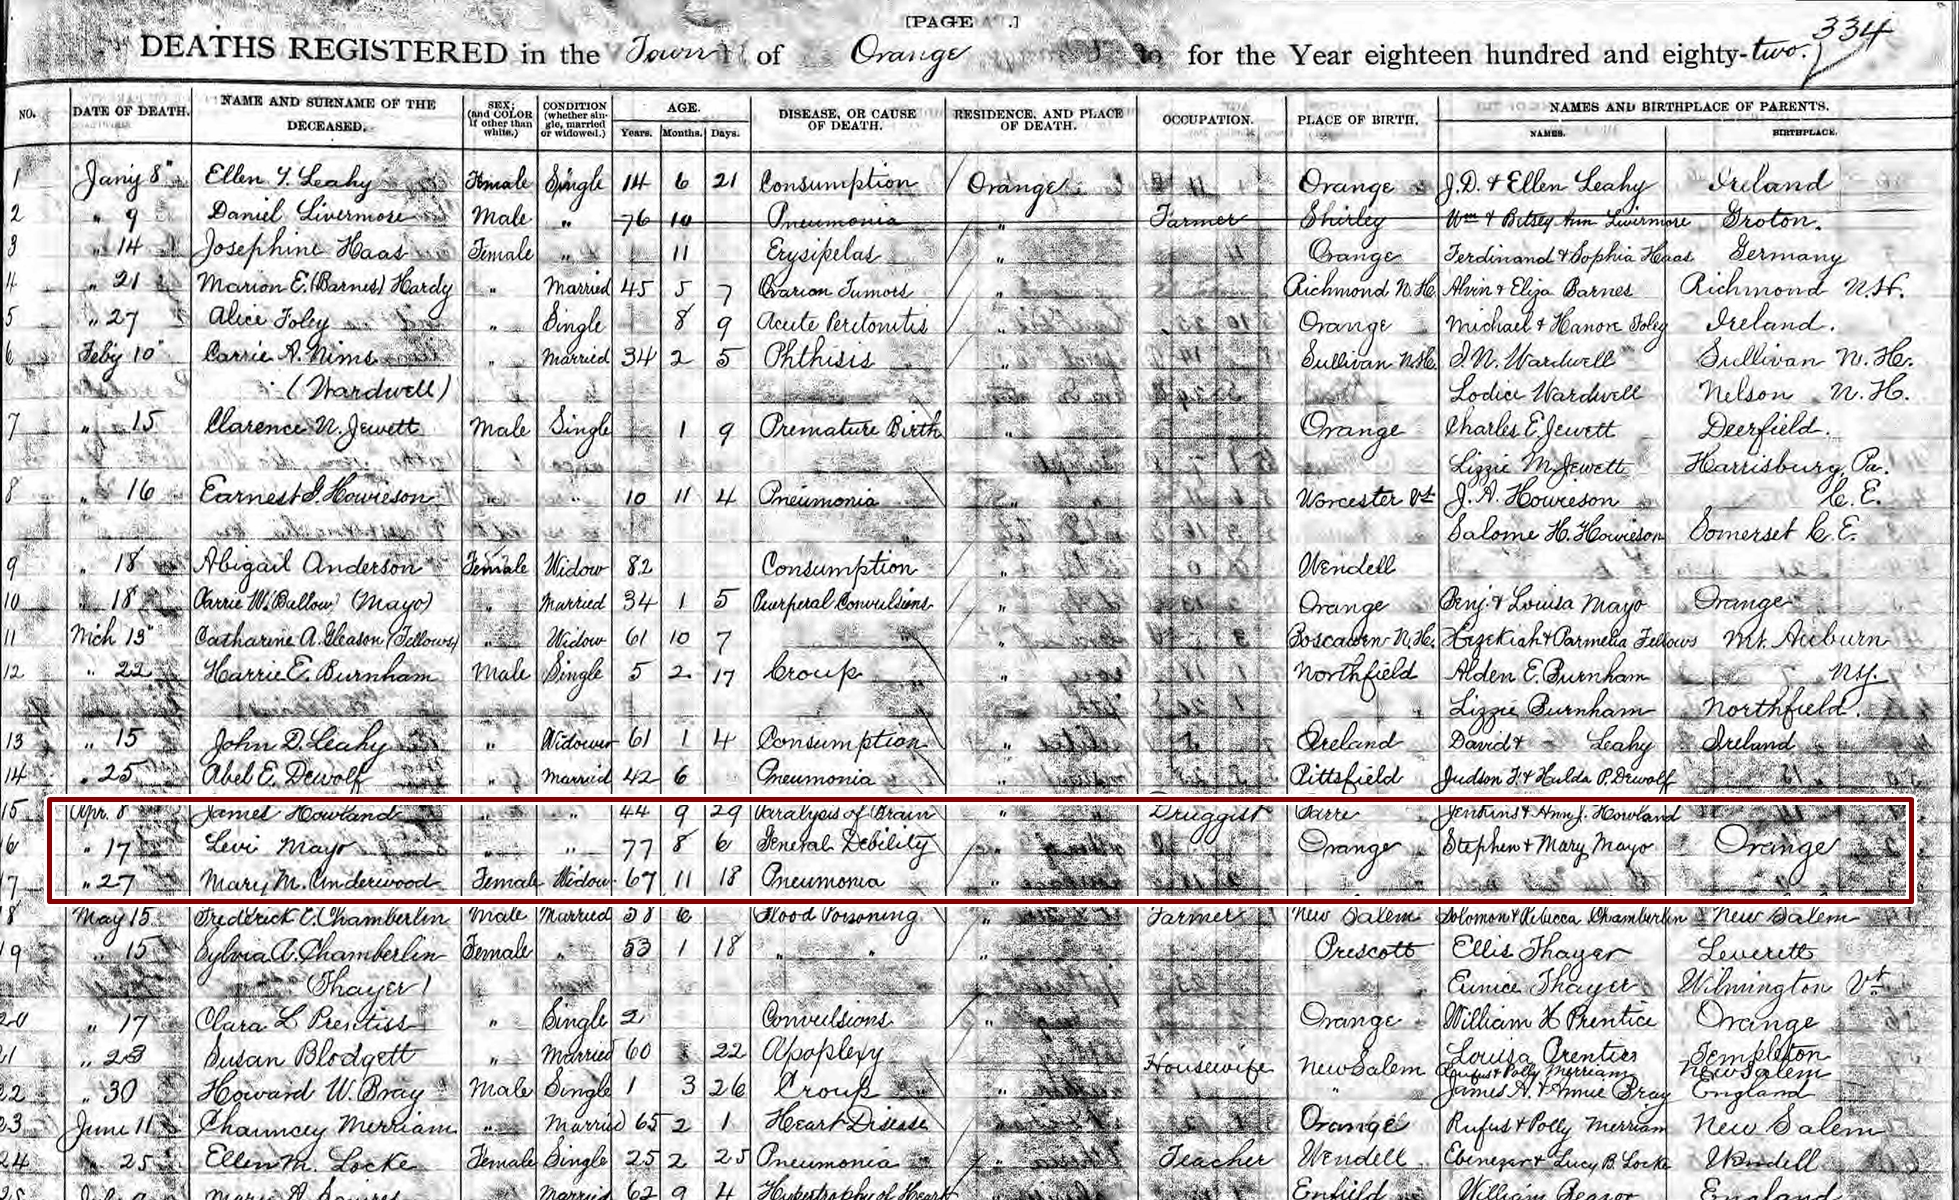 [PAGE .]
334
DEATHS REGISTERED in the Town of Orange for the Year eighteen hundred and eighty-two.
NO. DATE OF DEATH. NAME AND SURNAME OF THE DECEASED. SEX; (and COLOR if other than white.) CONDITION (whether single, married or widowed.) AGE. Years. Months. Days. DISEASE, OR CAUSE OF DEATH. RESIDENCE, AND PLACE OF DEATH. OCCUPATION. PLACE OF BIRTH. NAMES AND BIRTHPLACE OF PARENTS. NAMES. BIRTHPLACE.
1 Jany 8" Ellen Y. Leahy Female Single 14 6 21 Consumption Orange Orange J.D. & Ellen Leahy Ireland
2 " 9 Daniel Livermore Male " 76 10 Pneumonia " Farmer Shirley Wm & Betsey Ann Livermore Groton.
3 " 14 Josephine Haas Female " 11 Erysipelas " Orange Ferdinand & Sophia Haas Germany
4 " 21 Marion E. (Barnes) Hardy " Married 45 5 7 Ovarion Tumors " Richmond N.H. Alvin & Eliza Barnes Richmond N.H.
5 " 27 Alice Foley " Single 8 9 Acute Peritonitis " Orange Michael & Hanora Foley Ireland.
6 Feby 10" Carrie A. Nims " Married 34 2 5 Phthisis " Sullivan N.H. Wardwell Sullivan N.H.
(Wardwell) Lodice Wardwell Nelson N.H.
7 " 15 Clarence N. Jewett Male Single 1 9 Premature Birth " Orange Charles E. Jewett Deerfield.
Lizzie M. Jewett Harrisburg, Pa.
8 " 16 Earnest J. Howieson " " 10 11 4 Pneumonia " Worcester Vt J. A. Howieson C.E.
Salome H. Howieson Somerset C.E.
9 " 18 Abigail Anderson Female Widow 82 Consumption " Wendell
10 " 18 Carrie W. Ballou (Mayo) " Married 34 1 5 Puerperal Convulsions " Orange Benj. & Louisa Mayo Orange
11 Mch 13" Catharine A. Gleason (Fellows) " Widow 61 10 7 " Boscawen N.H. Hezekiah & Parmelia Fellows Mt. Auburn
12 " 22 Harrie E. Burnham Male Single 5 2 17 Croup " Northfield Alden E. Burnham N.Y.
Lizzie Burnham Northfield.
13 " 15 John D. Leahy " Widower 61 1 4 Consumption " Ireland David & - Leahy Ireland
14 " 25 Abel E. Dewolf " Married 42 6 Pneumonia " Pittsfield Judson F. & Hulda P. Dewolf
15 Apr. 8 James Howland " " 44 9 29 Paralysis of Brain " Druggist Barre Jenkins & Ann J. Howland
6 " 17 Levi Mayo " " 77 8 6 General Debility " Orange Stephen & Mary Mayo Orange
7 " 27 Mary M. Underwood Female Widow 67 11 18 Pneumonia "
8 May 15 Fredrick E. Chamberlin Male Married 58 6 Blood Poisoning " Farmer New Salem Solomon & Rebecca Chamberlin New Salem
19 " 15 Sylvia A. Chamberlin Female " 53 1 18 " " " Prescott Ellis Thayer Leverett
(Thayer) Eunice Thayer Wilmington Vt
20 " 17 Clara L Prentiss " Single 2 Convulsions " Orange William H Prentice Orange
21 " 23 Susan Blodgett " Married 60 22 Apoplexy Housewife New Salem Louisa Prentiss Templeton
Rufus & Polly Merriam New Salem
22 " 30 Howard W. Bray Male Single 1 3 26 Croup " " James A. & Annie Bray England
23 June 11 Chauncey Merriam " Married 65 2 1 Heart Disease " Orange Rufus & Polly Merriam New Salem
24 " 25 Ellen M. Locke Female Single 25 2 25 Pneumonia " Teacher Wendell Ebenezer & Lucy B. Locke Wendell
Married 62 9 4 Hypertrophy of Heart Enfield William England